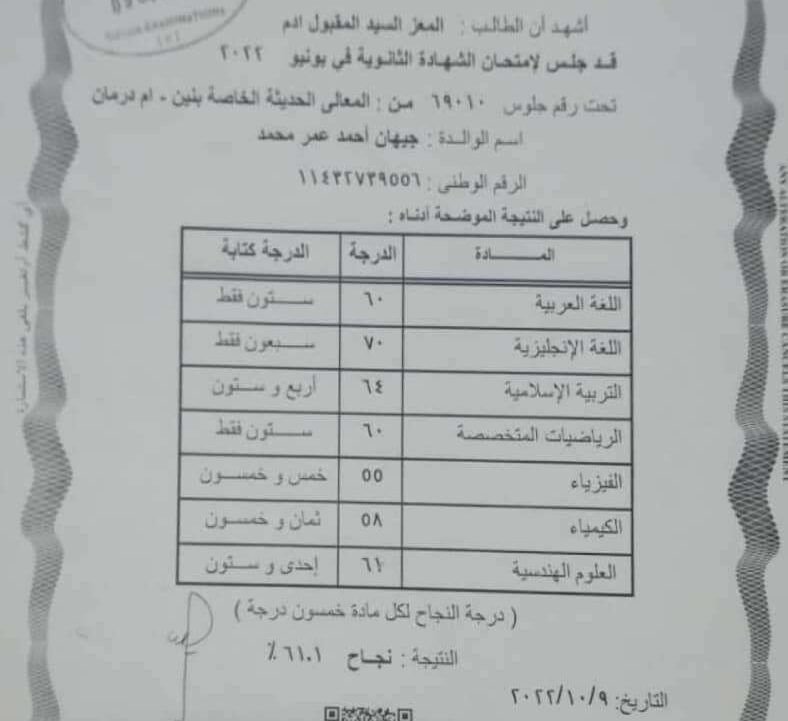 أشهد أن الطالب : المعز السيد المقبول ادم
قد جلس لإمتحان الشهادة الثانوية في يونيو ٢٠٢٢
تحت رقم جلوس ٦٩٠١٠ من : المعالى الحديثة الخاصة بنين - ام درمان
اسم الوالدة : جيهان أحمد عمر محمد
الرقم الوطنى : ١١٤٣٢٧٣٩٥٥٦
وحصل على النتيجة الموضحة أدناه :
المــــادة الدرجة الدرجة كتابة
اللغة العربية ٦٠ ستون فقط
اللغة الإنجليزية ٧٠ سبعون فقط
التربية الإسلامية ٦٤ أربع و ستون
الرياضيات المتخصصة ٦٠ ستون فقط
الفيزياء ٥٥ خمس و خمسون
الكيمياء ٥٨ ثمان و خمسون
العلوم الهندسية ٦١ إحدى و ستون
( درجة النجاح لكل مادة خمسون درجة )
النتيجة : نجاح ٦١.١ ٪
التاريخ: ٢٠٢٢/١٠/٩
ANY ALTERATION OR ERASURE CANCELS THIS STATEMENT
أى كشط أو تغيير يلغى هذه الاستمارة